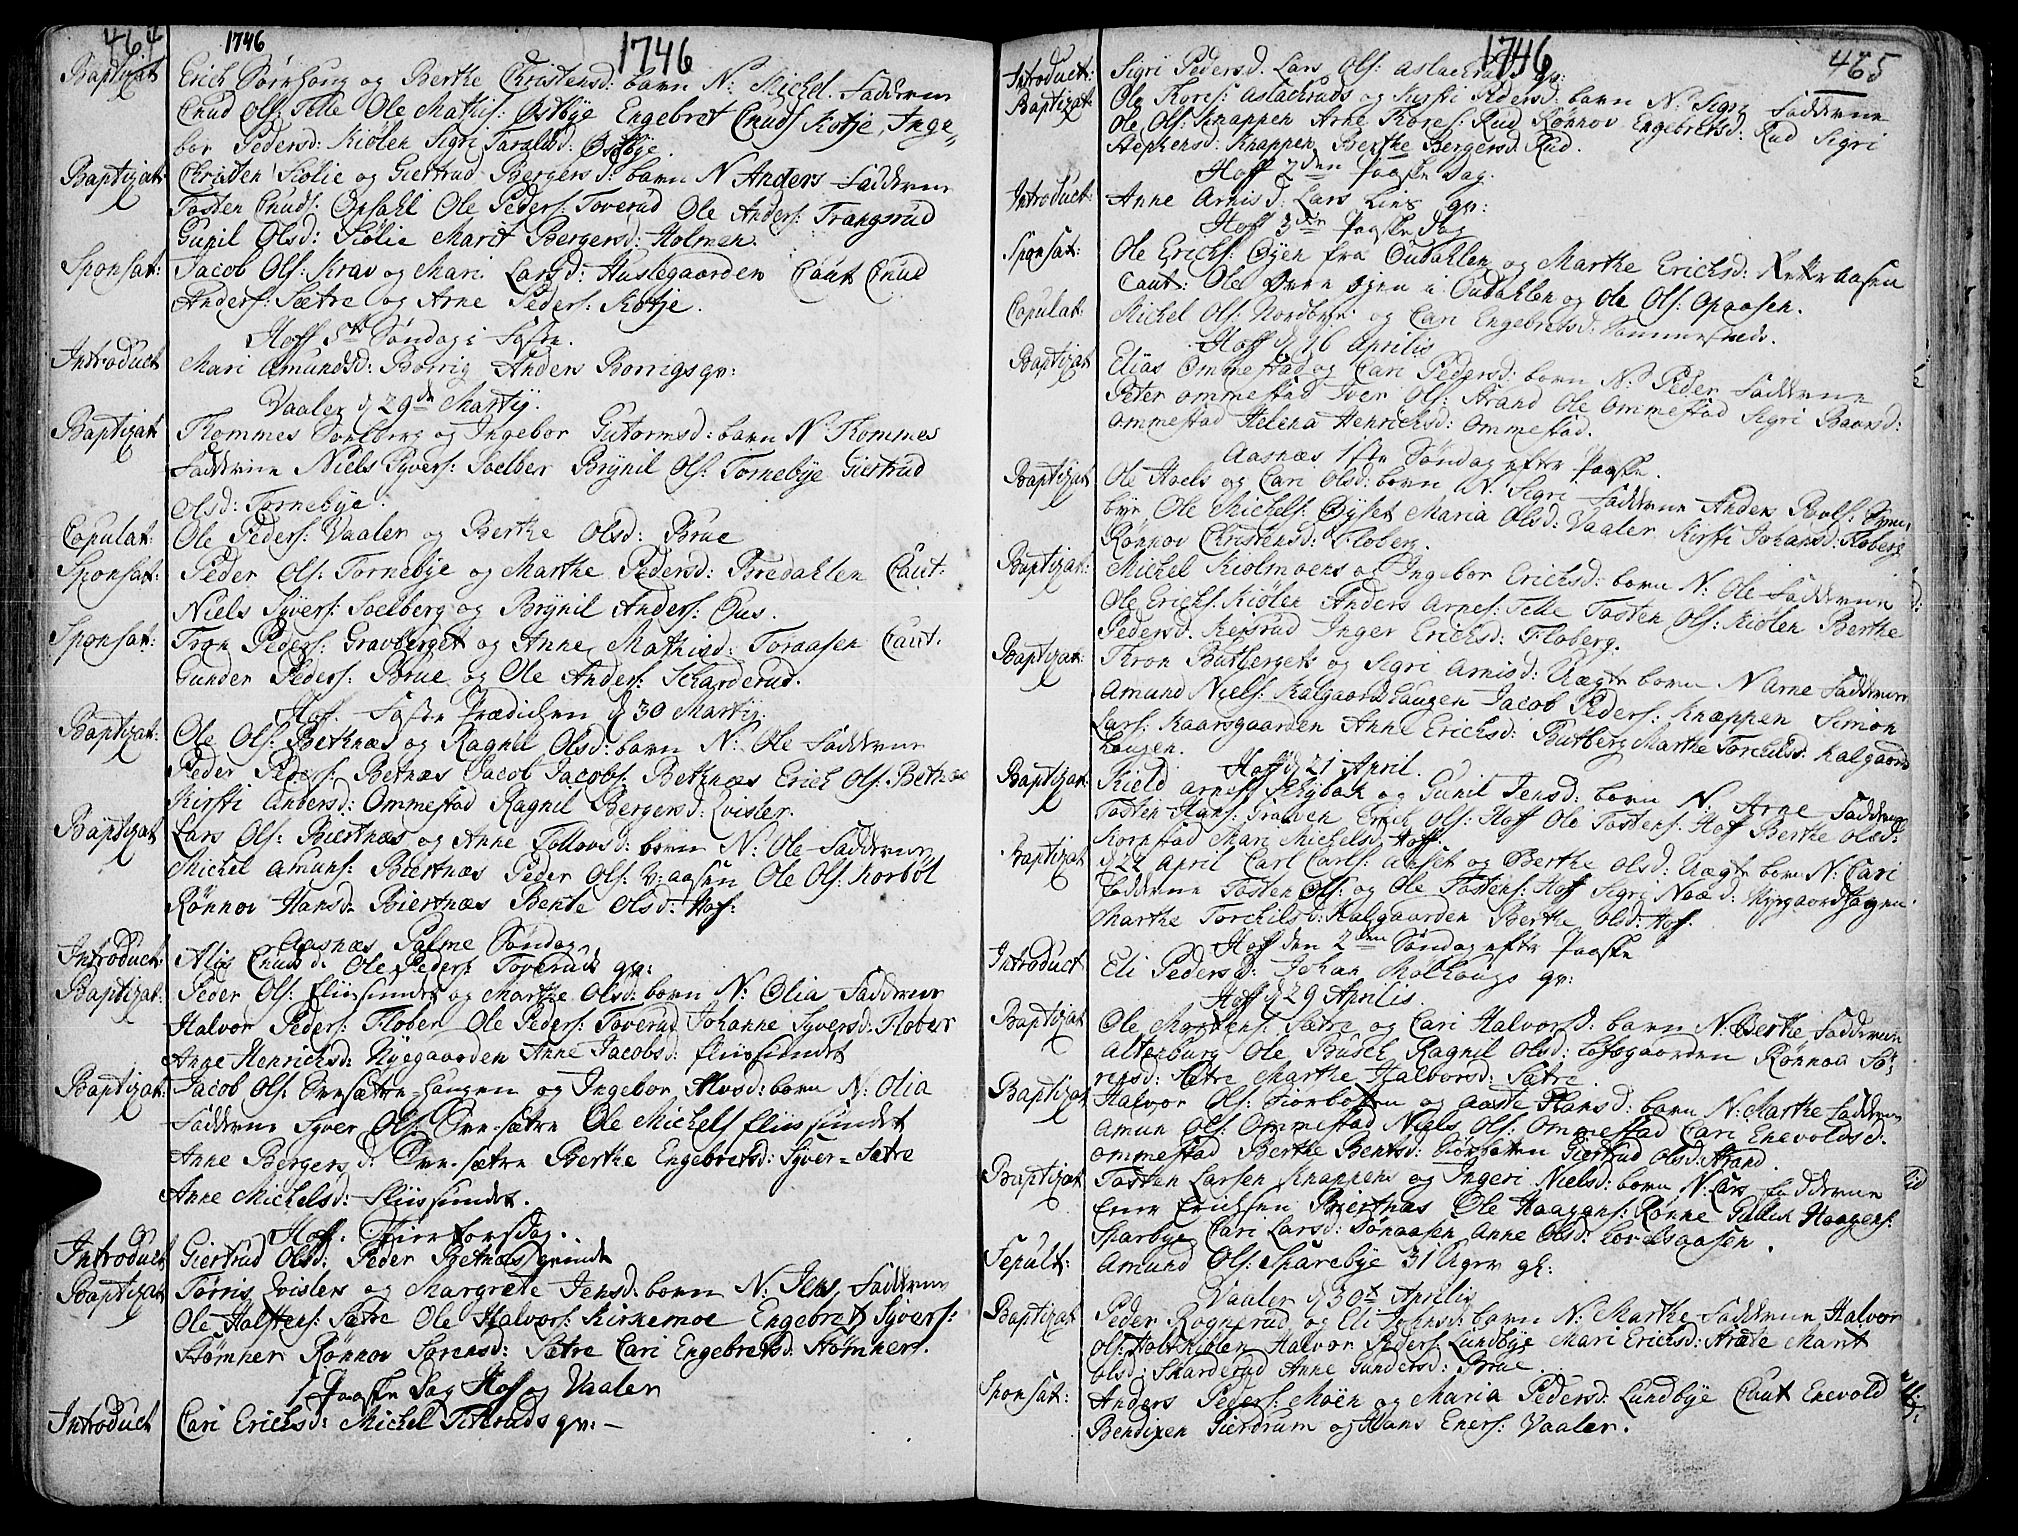 464
1746
1746
Baptizat Erich Sørrhaug og Berthe Christensd: barn N: Michel. Fadderne
Cnud Ols: Telle Ole Mathis: Østbye Engebret Cnuds: Kotje, Inge-
bor Pedersd: Kiølen Sigri Taralsd: Østbye.
Baptizat Christen Kiølie og Giertrud Bergersd: barn N Anders Fadderne
Tosten Cnuds: Opsahl Ole Peders: Toverud Ole Anders: Trangsrud
Gunil Olsd: Kiølie Marit Bergersd: Holmen.
Sponsat: Jacob Ols: Krav og Mari Larsd: Huslegaarden Caut Cnud
Anders: Sætre og Arne Peders: Kotje.
Hoff 5te Søndag i Faste.
Introduct Mari Amundsd: Borrig Anders Borrigs qv:
Vaaler d 29de Martij.
Baptizat Thommes Soelberg og Ingebor Gutormsd: barn N: Thommes
Fadderne Niels Syvers: Soelber Brynil Ols: Tornebye Giertrud
Olsd: Tornebye.
Copulat: Ole Peders: Vaaler og Berthe Olsd: Brue
Sponsat: Peder Ols: Tornebye og Marthe Pedersd: Bredahlen Caut:
Niels Syvers: Soelberg og Brynil Anders: Ous.
Sponsat: Tron Peders: Gravberget og Anne Mathisd: Toraasen Caut:
Gunder Peders: Brue og Ole Anders: Scharderud.
Hoff. Faste Prædichen d 30 Martij.
Baptizat: Ole Ols: Bethnæs og Ragnil Olsd: barn N: Ole Fadderne
Peder Peders: Betnæs Jacob Jacobs: Bethnæs Erich Ols: Bethnæs
Kirsti Andersd: Ommestad Ragnil Bergersd: Qvisler.
Baptizat Lars Ols: Biertnæs og Anne Tollovsd: barn N: Ole Fadderne
Michel Amuns: Biertnæs Peder Ols: aasen Ole Ols: Korbøl
Rønnov Hansd: Biertnæs Bente Olsd: Hof:
Aasnæs Palme Søndag.
Introduct: Alis Cnudsd: Ole Peders: Toveruds qv:
Baptizat: Peder Ols: Fliisundet og Marthe Olsd: barn N: Olia Fadderne
Halvor Peders: Flober Ole Peders: Toverud Johanne Syversd: Flober
Anne Henrichsd: Nyegaarden Anne Jacobsd: Fliissundet
Baptizat: Jacob Ols: Ovesætre-haugen og Ingebor Alvsd: barn N: Olia
Fadderne Syver Ols: Ove-sætre Ole Michels Fliissundet
Anne Bergersd: Ove-sætre Berthe Engebretsd: Syver-Sætre
Anne Michelsd: Fliissundet.
Hoff. Skiærtorsdag.
Introduct Giertrud Olsd: Peder Betnæs qvinde
Baptizat Tørris Qvisler og Margrete Jensd: barn N: Jens Fadderne
Ole Halstens: Sætre Ole Halvors: Kirkemoe Engebret Syvers:
Stømner Rønnov Sørensd: Sætre Cari Engebretsd: Stømner.
1 Paaske Dag Hof og Vaaler
Introduct Cari Erichsd: Michel Titeruds qv:-
1746
465
Introduct: Sigri Pedersd. Lars Ols: Aslachruds qv:
Baptizat: Ole Kores: Aslachruds og Kirsti Pedersd: barn N: Sigri Fadderne
Ole Ols: Knappen Arne Kores: Rud Rønnov Engebretsd: Rud Sigri
Stephensd: Knappen Berthe Bergersd: Rud.
Hoff 2den Paaske Dag.
Introduct: Anne Arnisd: Lars Lies qv:
Hoff 3die Paaske Dag
Sponsat: Ole Erichs: Øyen fra Oudahlen og Marthe Erichsd: aasen
Caut: Ole øyen i Oudahlen og Ole Ols: Opaasen.
Copulat: Michel Ols: Nordbye og Cari Engebretsd: Sommerstads.
Hoff d 16 Aprilis
Baptizat Elias Ommestad og Cari Pedersd: barn N: Peder Fadderne
Peter Ommestad Iver Ols: Strand Ole Ommestad Sigri Baarsd:
Ommestad Helena Henrichsd: Ommestad.
Aasnæs 1ste Søndag efter Paaske.
Baptizat Ole Hoels og Cari Olsd: barn N: Sigri Fadderne Anders Pouls:
bye Ole Michels: Øyset Maria Olsd: Vaaler Kirsti Johansd: Floberg
Rønnov Christensd: Floberg.
Baptizat: Michel Kiølmoens og Ingebor Erichsd: barn N: Ole Fadderne
Ole Erichs: Kiølen Anders Arnes: Telle Tosten Ols: Kiølen Berthe
Pedersd: Inger Erichsd: Floberg.
Baptizat: Thron Butbergets og Sigri Arnisd: Uægte barn N Arne Fadderne
Amund Niels: Kalgaardshaugen Jacob Peders: Knappen Simon
Lars: Kaarsgaarden Anne Erichsd: Butberg Marthe Torchilsd: Kalgaards
haugen.
Hoff d 21 April.
Baptizat: Kield Arnes: Schybak og Gunil Jensd: barn N: Arne Fadderne
Tosten Hans: Graven Erich Ols: Hoff Ole Tostens: Hoff Berthe Olsd:
Kornstad Mari Michelsd: Hoff.
Baptizat d 22 April Carl Carls: Anset og Berthe Olsd: Uægte barn N: Cari
Fadderne Tosten Ols: og Ole Tostens: Hoff Sigri d: Nyegaardshagen
Marthe Torchilsd: Kalgaarden Berthe Olsd: Hof.
Hoff den 2den Søndag efter Paaske
Introduct Eli Pedersd: Johan Mølhaugs qv:
Hoff d 29 Aprilis.
Baptizat Ole Mortens: Sætre og Cari Halvorsd: barn N: Berthe Fadderne
Altenburg Ole Busch Ragnil Olsd: Lofsgaarden Rønnou Sø-
rensd: Sætre Marthe Halvorsd: Sætre.
Baptizat Halvor Ols: Siorbotten og Aaste Hansd: barn N: Marthe Fadderne
Amun Ols: Ommestad Niels Ols: Ommestad Cari Enevoldsd:
Ommestad Berthe Bentsd: Siorboten Giertrud Olsd: Strand.
Baptizat Tosten Larsen Knappens og Ingeri Nielsd: barn N: Lars Fadderne
Ener Erichsen Biertnæs Ole Haagens: Rønne Gulluk Haagens:
Sparbye Cari Larsd: Sønaasen Anne Olsd: Lovelsaasen.
Sepult: Amund Ols: Sparebye 31 Uger gl:
Vaaler d 30te Aprilis
Baptizat Peder Rognerud og Eli Johnsd: barn N: Marthe Fadderne Halvor
Ols: Kiølen Halvor Peders: Lundbye Mari Erichsd: Stræte Marit
Olsd: Skarderud Anne Gundersd: Brue.
Sponsat: Anders Peders: Moen og Maria Pedersd: Lundbye Caut Enevold
Bendixen Gierdrum og Hans Eners: Vaaler.